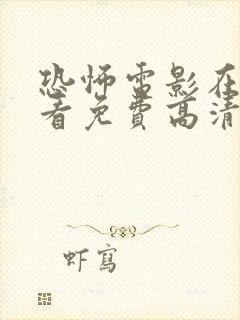 恐怖雷影在
看免費高清
虾寫